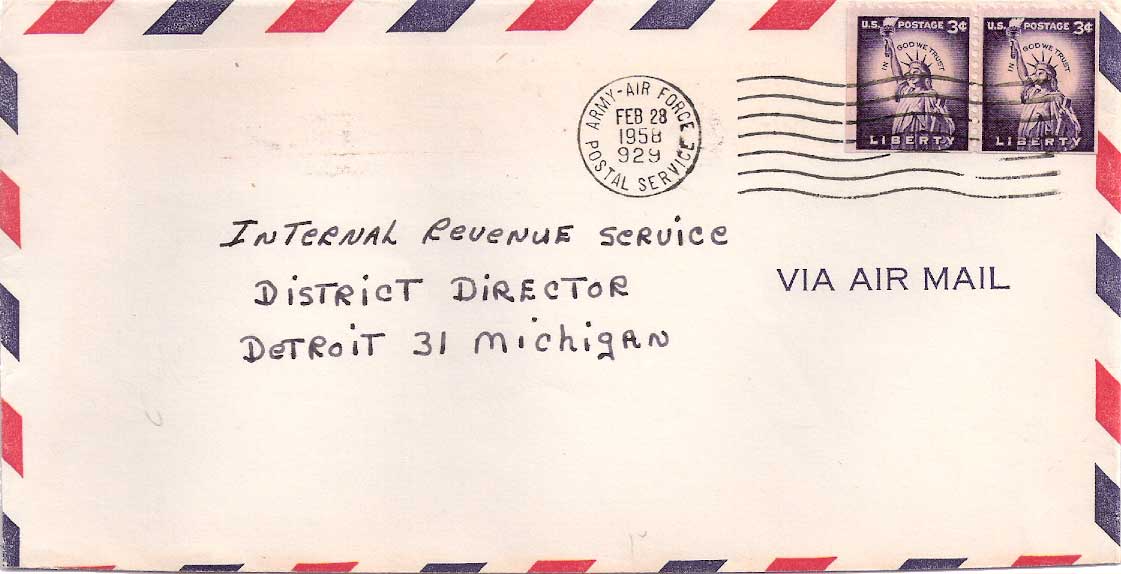 U.S. POSTAGE 3¢
IN GOD WE TRUST
LIBERTY
U.S. POSTAGE 3¢
IN GOD WE TRUST
LIBERTY
ARMY-AIR FORCE
FEB 28
1958
929
POSTAL SERVICE
INTERNAL REVENUE SERVICE
DISTRICT DIRECTOR
DETROIT 31 MICHIGAN
VIA AIR MAIL